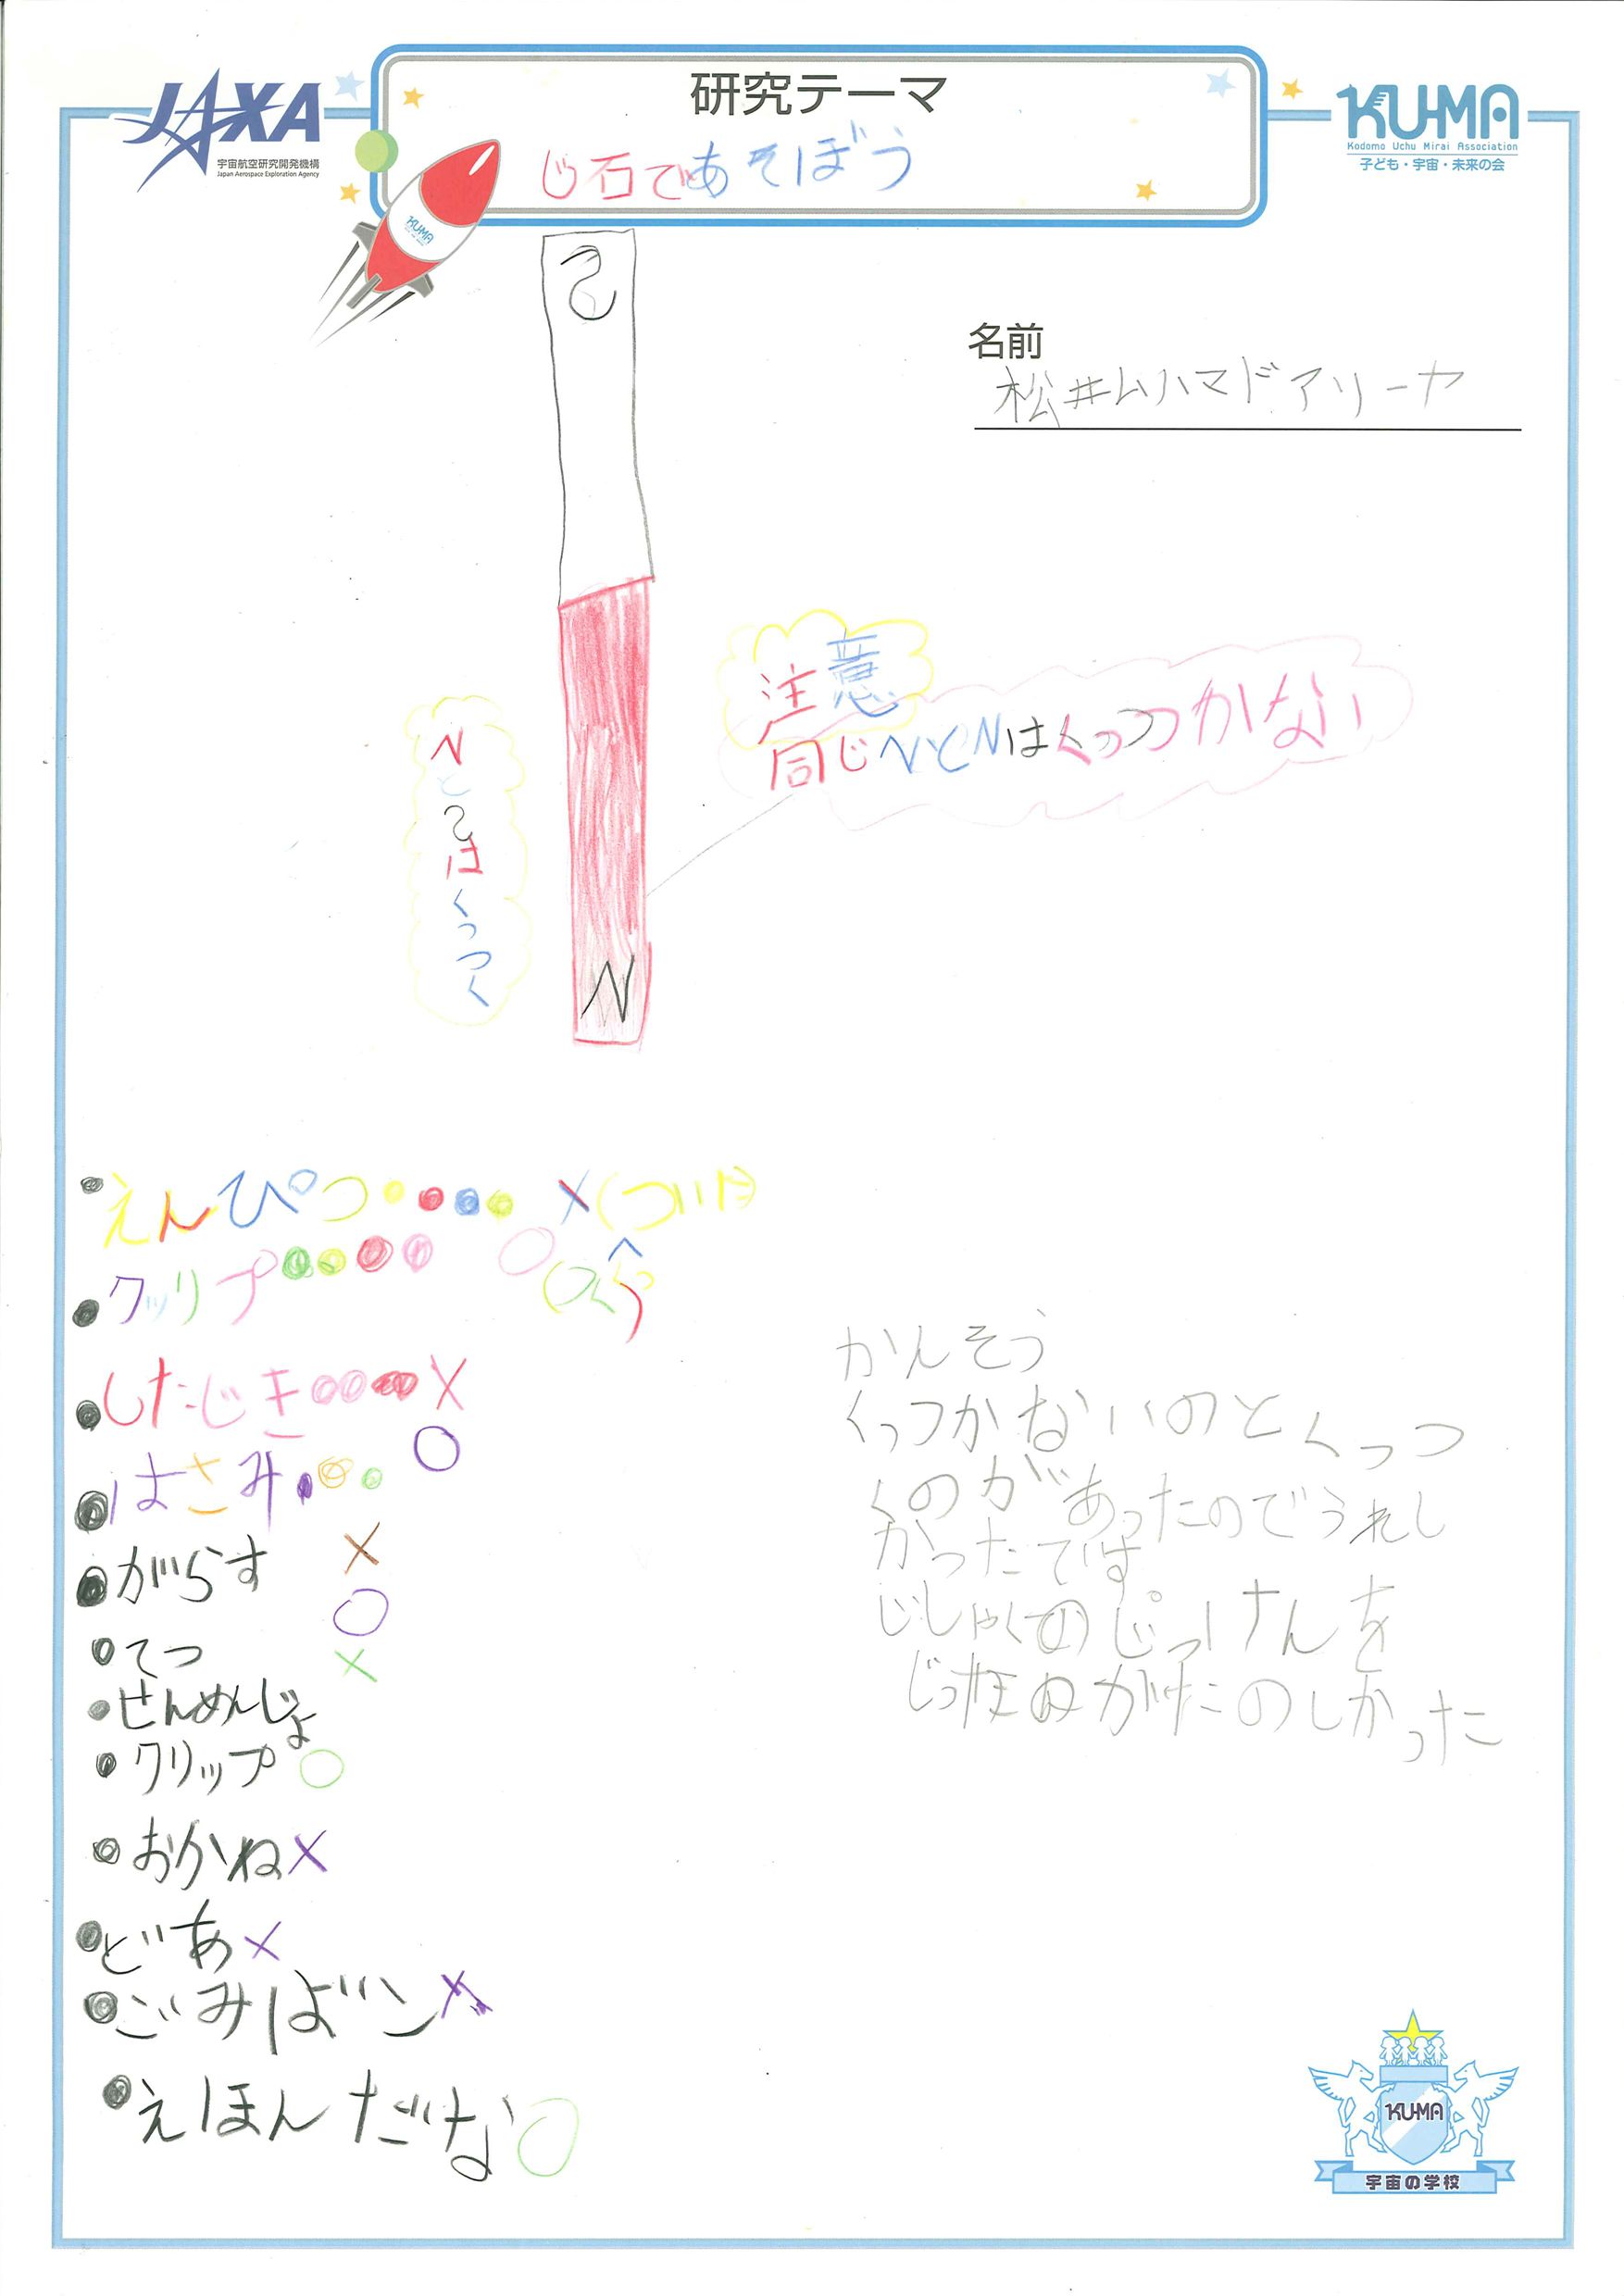 研究テーマ
JAXA
宇宙航空研究開発機構
Japan Aerospace Exploration Agency
じ石であそぼう
KUMA
Kodomo Uchu Mirai Association
子ども・宇宙・未来の会
KUMA
名前
松井ムハマドアリーヤ
注意
同じNとNはくっつかない
Nと
はくっつく
N
えんぴつ × (ついた
クッリプ ○
したじき ×
はさみ ○
がらす ×
てつ ○
せんめんじょ ×
クリップ ○
おかね ×
どあ ×
ごみばン ×
えほんだな ○
かんそう
くっつかないのとくっつ
くのがあったのでうれし
かったです。
じしゃくのじっけんを
がたのしかった
KUMA
宇宙の学校